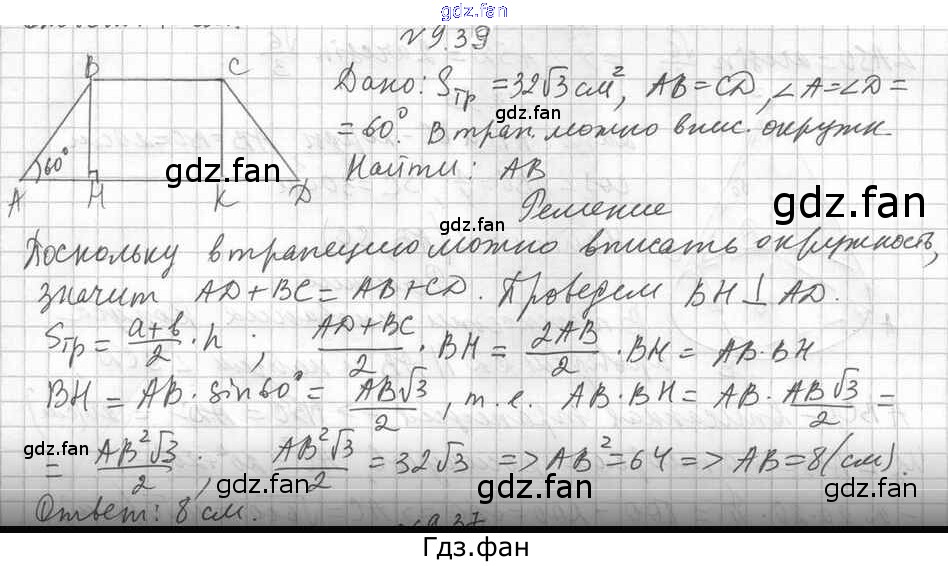 gdz.fan
№9.39
B C
Дано: Sтр = 32√3 см², AB = CD, ∠A = ∠D =
= 60°. В трап. можно впис. окружн.
60°
Найти: AB
A H K D
gdz.fan
gdz.fan
gdz.fan
Решение
gdz.fan
gdz.fan
Поскольку в трапецию можно вписать окружность,
значит AD + BC = AB + CD. Проведем BH ⊥ AD.
Sтр = (a+b)/2 · h ; (AD+BC)/2 · BH = 2AB/2 · BH = AB · BH
BH = AB · sin60° = AB√3/2, т.е. AB · BH = AB · AB√3/2 =
gdz.fan
= AB²√3/2 ; AB²√3/2 = 32√3 => AB² = 64 => AB = 8 (см).
gdz.fan
gdz.fan
Ответ: 8 см.
№9.37
Гдз.фан